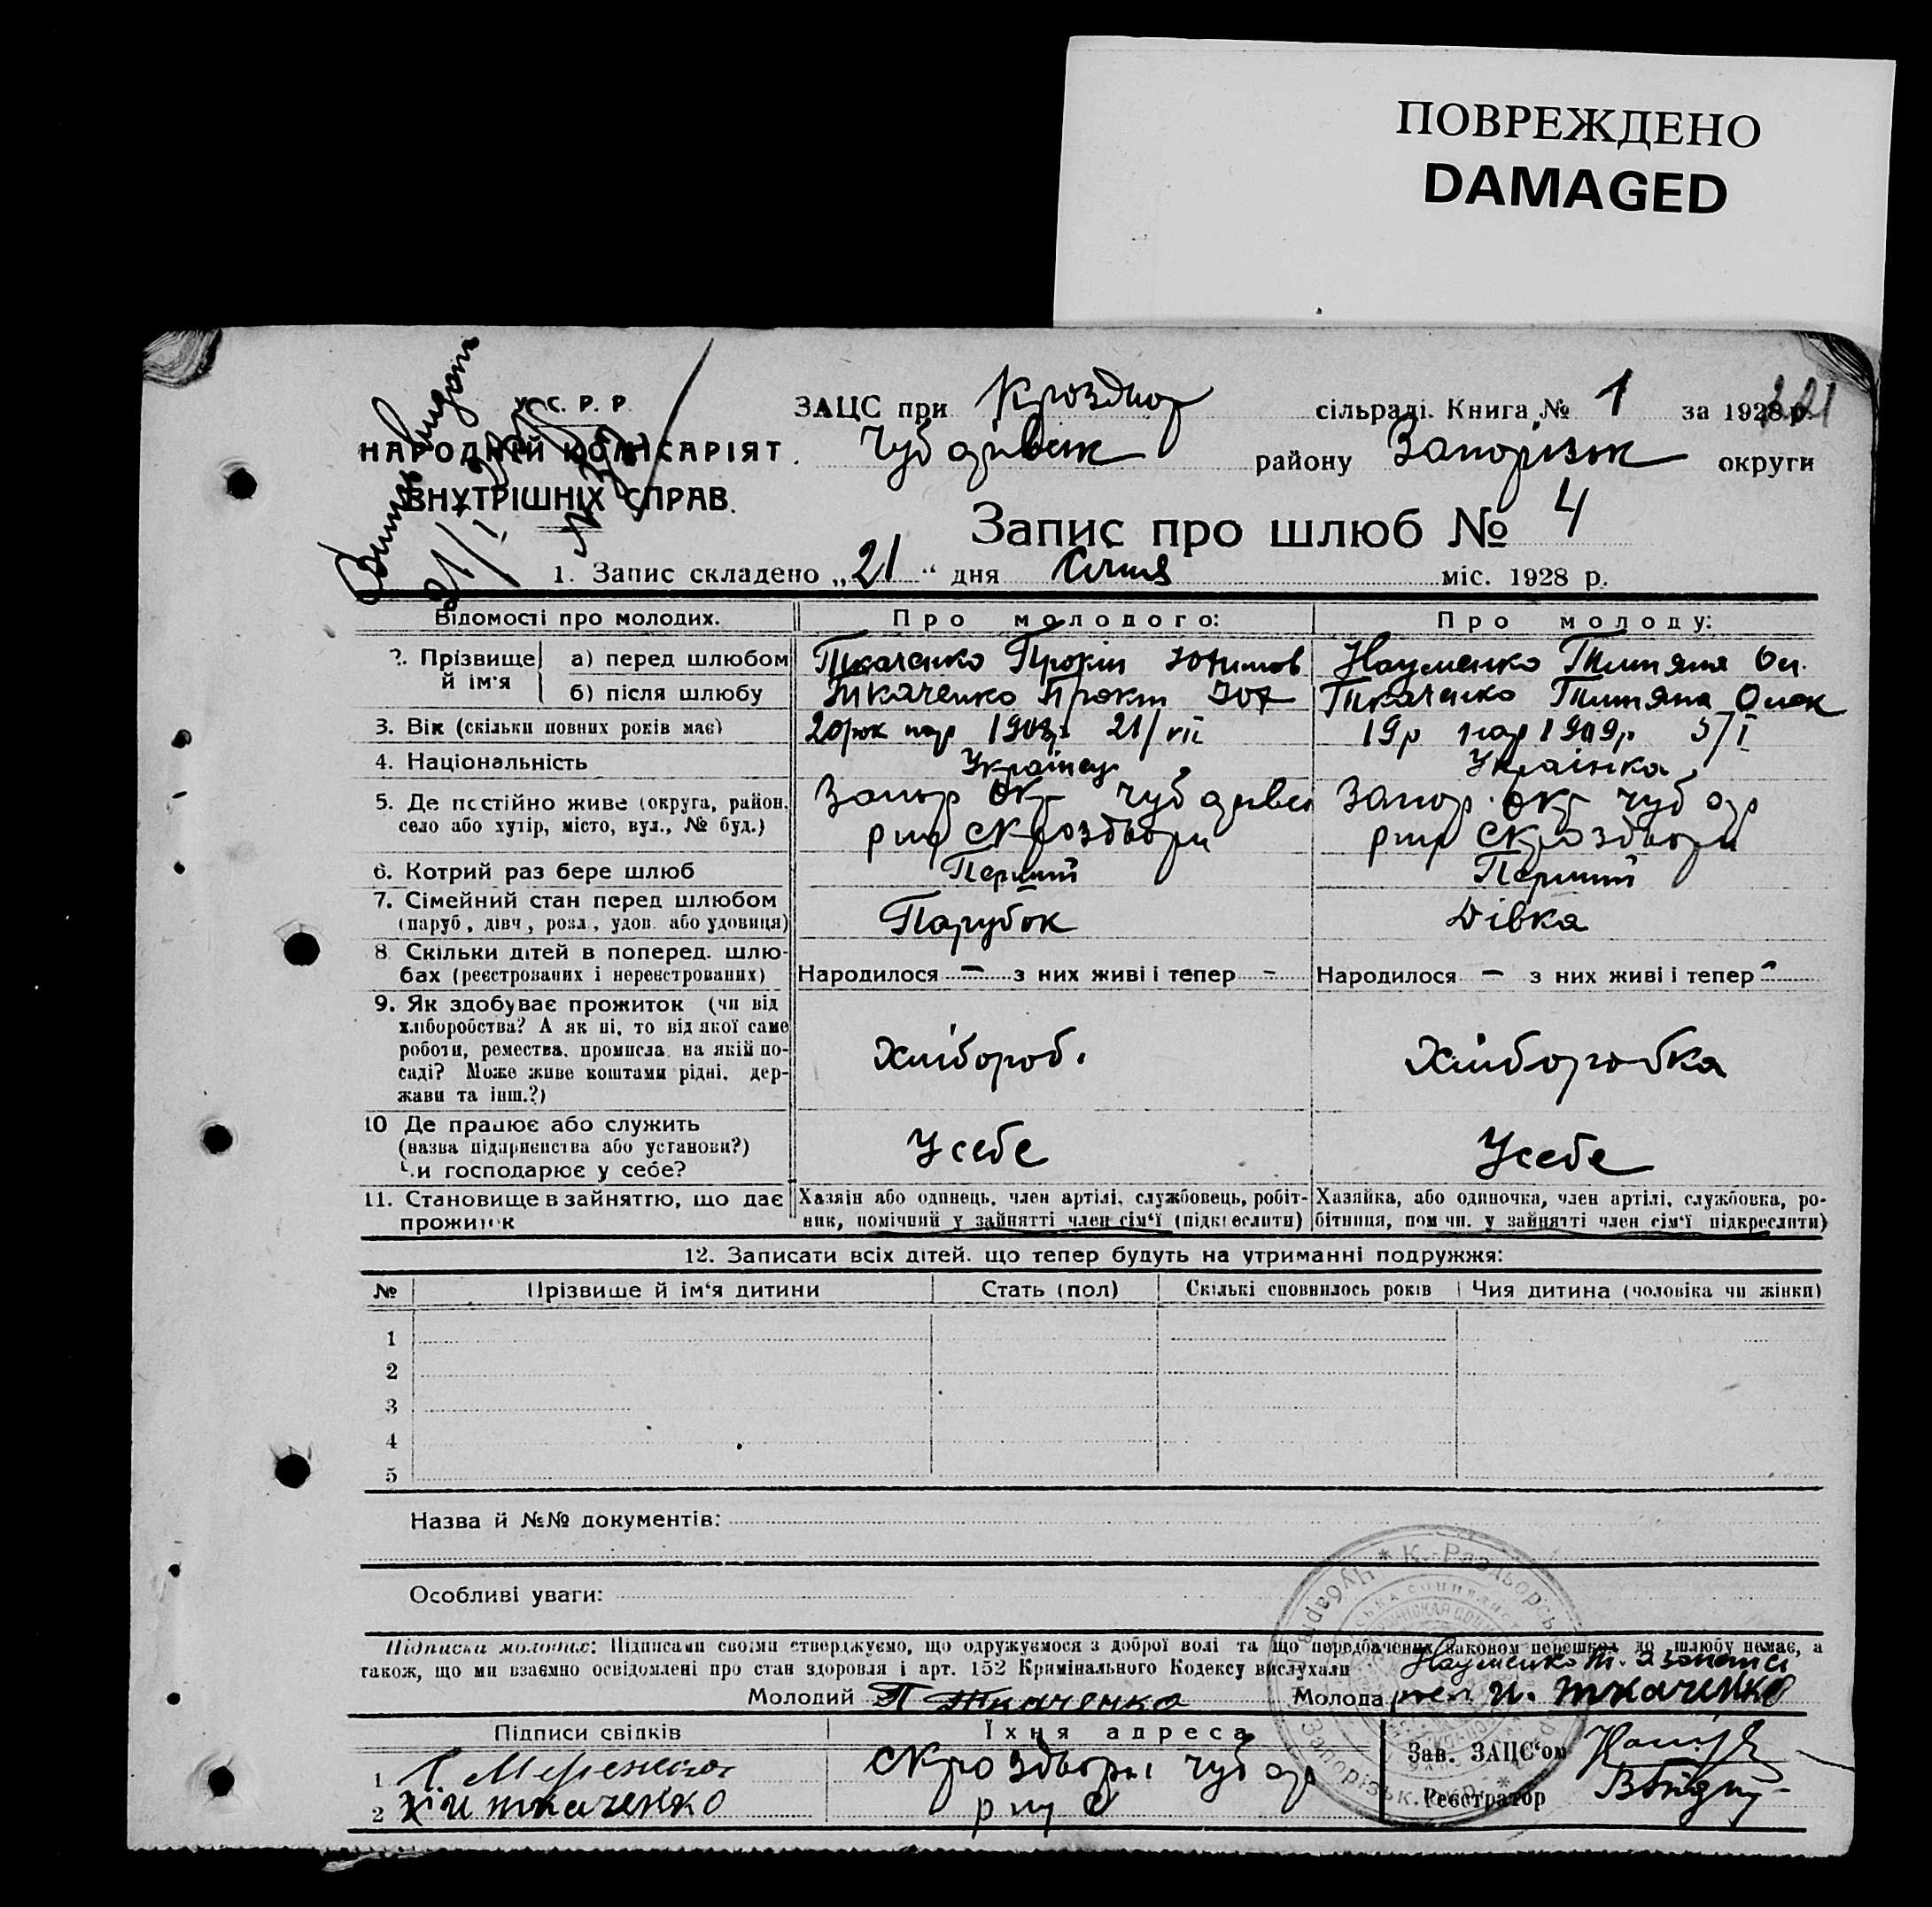 ПОВРЕЖДЕНО
DAMAGED
221
У. С. Р. Р.
НАРОДНІЙ КОМІСАРІЯТ
ВНУТРІШНІХ СПРАВ.
ЗАЦС при Кроздор сільраді. Книга № 1 за 1928 р.
Чубарівськ району Запорізьк округи
Запис про шлюб № 4
1. Запис складено „21“ дня Січня міс. 1928 р.
Відомості про молодих. Про молодого: Про молоду:
2. Прізвище й ім'я
а) перед шлюбом Ткаченко Прокіп Юхимов Науменко Титяна Ол.
б) після шлюбу Ткаченко Прокіп Юх Ткаченко Титяна Олек
3. Вік (скільки повних років має) 20 рок нар 21/VII 19 р нар 1909 р 5/I
4. Національність Українец Українка
5. Де постійно живе (округа, район, село або хутір, місто, вул., № буд.)
Запор окр Чубарівсь Запор. окр Чубар
р-ну с Кроздвори р-ну с Кроздвори
6. Котрий раз бере шлюб Перший Перший
7. Сімейний стан перед шлюбом
(паруб., дівч., розл., удов. або удовиця) Парубок Дівка
8. Скільки дітей в поперед. шлю-
бах (реєстрованих і нереєстрованих) Народилося — з них живі і тепер - Народилося — з них живі і тепер -
9. Як здобуває прожиток (чи від
хліборобства? А як ні, то від якої саме
роботи, ремества, промисла, на якій по-
саді? Може живе коштами рідні, дер-
жави та інш.?)
Хлібороб. Хліборобка
10 Де працює або служить
(назва підприємства або установи?)
Чи господарює у себе?
У себе У себе
11. Становище в зайняттю, що дає
прожиток
Хазяїн або одинець, член артілі, службовець, робіт-
ник, помічний у зайнятті член сім'ї (підкреслити)
Хазяйка, або одиночка, член артілі, службовка, ро-
бітниця, помічн. у зайнятті член сім'ї підкреслити)
12. Записати всіх дітей, що тепер будуть на утриманні подружжя:
№ Прізвище й ім'я дитини Стать (пол) Скількі сповнилось років Чия дитина (чоловіка чи жінки)
1
2
3
4
5
Назва й №№ документів:
Особливі уваги:
Підписка молодих: Підписами своїми стверджуємо, що одружуємося з доброї волі та що передбачених законом перешкод до шлюбу немає, а
також, що ми взаємно освідомлені про стан здоровля і арт. 152 Кримінального Кодексу вислухали
Науменко Т.
Молодий П Ткаченко Молода Ткаченко
Підписи свідків Їхня адреса
1
2 Ткаченко
с Кроздвори Чубар
р-ну
Зав. ЗАЦС'ом
Реєстратор